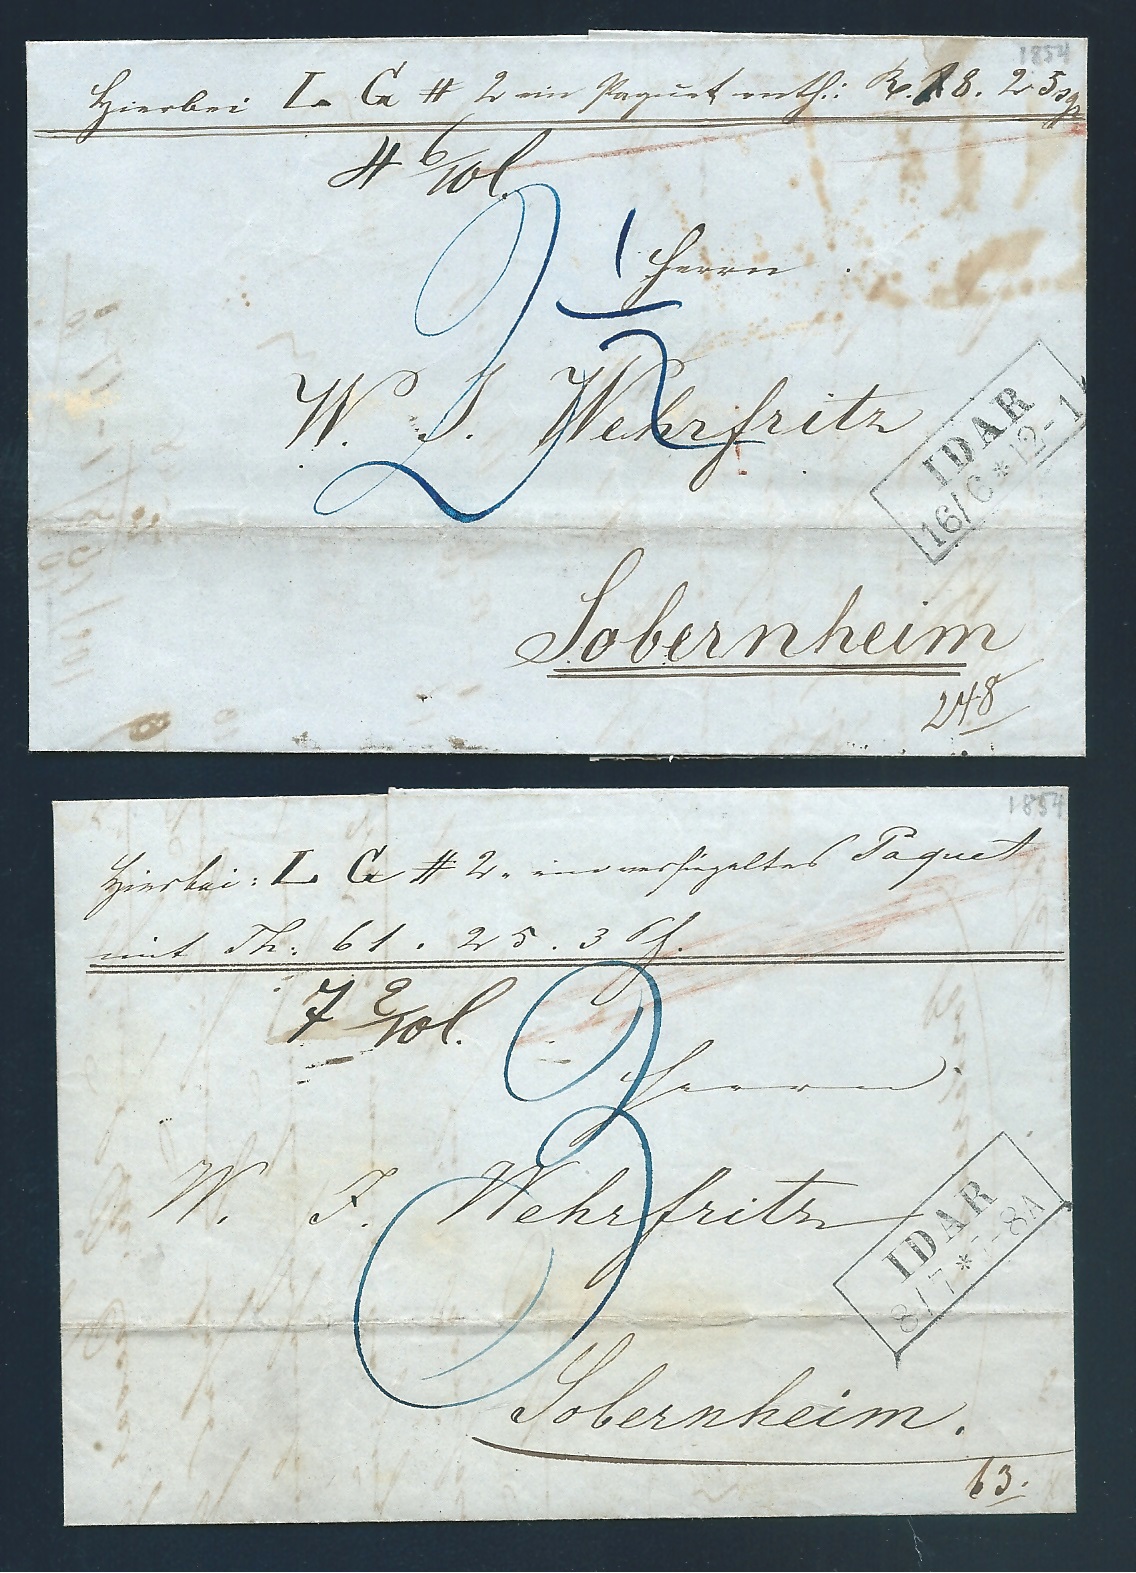 1854
Hierbei L G # 2 ein Paquet enth: R. 18. 25 sgr
4 6/10 l.
2 1/2
Herrn
W. J. Wehrfritz
IDAR
16/6 * 12-1
Sobernheim
248
1854
Hierbei: L G # 2. ein versiegeltes Paquet
mit Th: 61. 25. 3 Pf.
7 2/10 l.
3
Herrn
W. J. Wehrfritz
IDAR
8/7 * 7-8A
Sobernheim.
63.